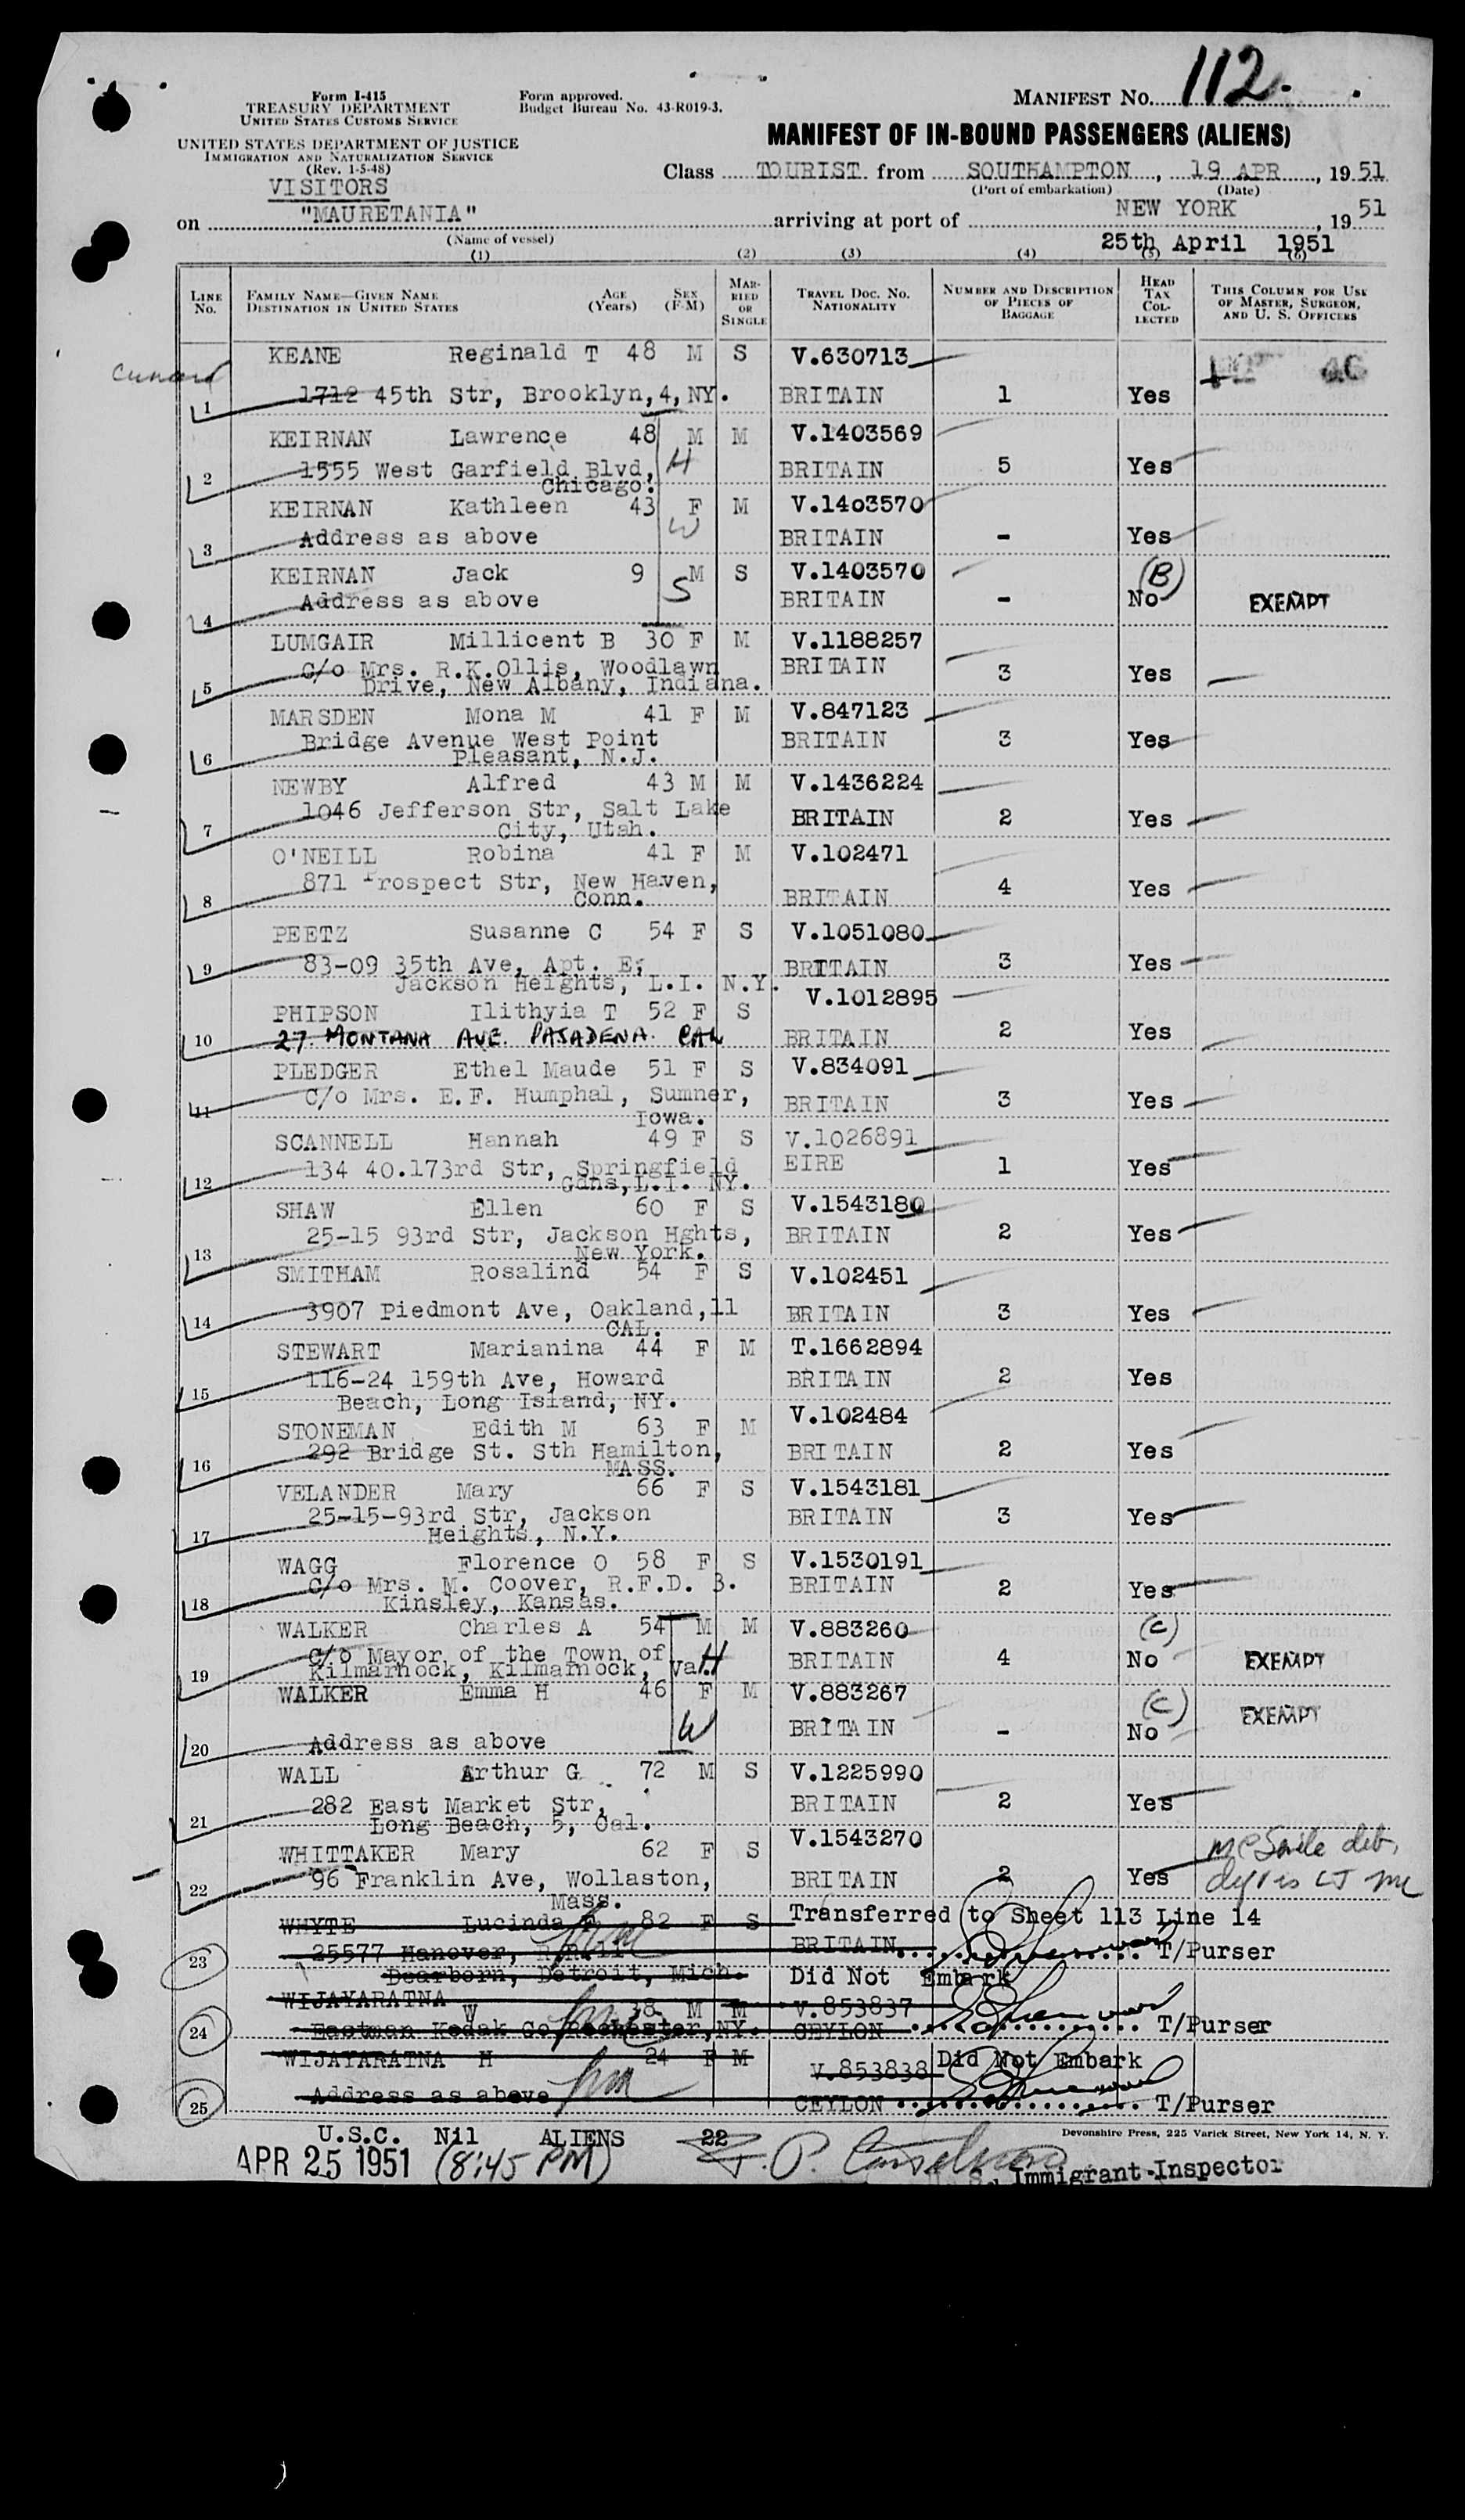 112.
Form I-415
TREASURY DEPARTMENT
UNITED STATES CUSTOMS SERVICE
Form approved.
Budget Bureau No. 43-R019-3.
MANIFEST NO.
UNITED STATES DEPARTMENT OF JUSTICE
IMMIGRATION AND NATURALIZATION SERVICE
(Rev. 1-5-48)
MANIFEST OF IN-BOUND PASSENGERS (ALIENS)
VISITORS
Class TOURIST from SOUTHAMPTON, 19 APR, 19 51
(Port of embarkation) (Date)
on "MAURETANIA" arriving at port of NEW YORK, 19 51
(Name of vessel)
25th April 1951
(1) (2) (3) (4) (5) (6)
LINE NO.
FAMILY NAME—GIVEN NAME
DESTINATION IN UNITED STATES
AGE (Years)
SEX (F-M)
MARRIED OR SINGLE
TRAVEL DOC. NO.
NATIONALITY
NUMBER AND DESCRIPTION OF PIECES OF BAGGAGE
HEAD TAX COLLECTED
THIS COLUMN FOR USE OF MASTER, SURGEON, AND U. S. OFFICERS
Cunard
KEANE Reginald T 48 M S V.630713
1 1712 45th Str, Brooklyn,4,NY. BRITAIN 1 Yes
KEIRNAN Lawrence 48 M M V.1403569
2 1555 West Garfield Blvd, H BRITAIN 5 Yes
Chicago.
KEIRNAN Kathleen 43 F M V.1403570
3 Address as above W BRITAIN - Yes
KEIRNAN Jack 9 M S V.1403570 (B)
4 Address as above S BRITAIN - No EXEMPT
LUMGAIR Millicent B 30 F M V.1188257
5 C/o Mrs. R.K.Ollis, Woodlawn BRITAIN 3 Yes
Drive, New Albany, Indiana.
MARSDEN Mona M 41 F M V.847123
6 Bridge Avenue West Point BRITAIN 3 Yes
Pleasant, N.J.
NEWBY Alfred 43 M M V.1436224
7 1046 Jefferson Str, Salt Lake BRITAIN 2 Yes
City, Utah.
O'NEILL Robina 41 F M V.102471
8 871 Prospect Str, New Haven, BRITAIN 4 Yes
Conn.
PEETZ Susanne C 54 F S V.1051080
9 83-09 35th Ave, Apt. E, BRITAIN 3 Yes
Jackson Heights, L.I. N.Y.
PHIPSON Ilithyia T 52 F S V.1012895
10 27. MONTANA AVE. PASADENA. CAL BRITAIN 2 Yes
PLEDGER Ethel Maude 51 F S V.834091
11 C/o Mrs. E.F. Humphal, Sumner, BRITAIN 3 Yes
Iowa.
SCANNELL Hannah 49 F S V.1026891
12 134 40.173rd Str, Springfield EIRE 1 Yes
Gdns,L.I. NY.
SHAW Ellen 60 F S V.1543180
13 25-15 93rd Str, Jackson Hghts, BRITAIN 2 Yes
New York.
SMITHAM Rosalind 54 F S V.102451
14 3907 Piedmont Ave, Oakland,11 BRITAIN 3 Yes
CAL.
STEWART Marianina 44 F M T.1662894
15 116-24 159th Ave, Howard BRITAIN 2 Yes
Beach, Long Island, NY.
STONEMAN Edith M 63 F M V.102484
16 292 Bridge St. Sth Hamilton, BRITAIN 2 Yes
MASS.
VELANDER Mary 66 F S V.1543181
17 25-15-93rd Str, Jackson BRITAIN 3 Yes
Heights, N.Y.
WAGG Florence O 58 F S V.1530191
18 C/o Mrs. M. Coover, R.F.D. 3. BRITAIN 2 Yes
Kinsley, Kansas.
WALKER Charles A 54 M M V.883260 (C)
19 C/o Mayor of the Town of H BRITAIN 4 No EXEMPT
Kilmarnock, Kilmarnock, Va.
WALKER Emma H 46 F M V.883267 (C)
W BRITAIN - No EXEMPT
20 Address as above
WALL Arthur G 72 M S V.1225990
21 282 East Market Str, BRITAIN 2 Yes
Long Beach, 5, Cal.
WHITTAKER Mary 62 F S V.1543270
22 96 Franklin Ave, Wollaston, BRITAIN 2 Yes
Mass.
WHYTE Lucinda 82 F S Transferred to Sheet 113 Line 14
23 25577 Hanover, BRITAIN T/Purser
Dearborn, Detroit, Mich. Did Not Embark
WIJAYARATNA W 38 M M V.853837
24 Eastman Kodak Co Rochester,NY. CEYLON T/Purser
WIJAYARATNA H 24 F M V.853838 Did Not Embark
25 Address as above CEYLON T/Purser
U.S.C. Nil ALIENS 22
Devonshire Press, 225 Varick Street, New York 14, N. Y.
APR 25 1951 (8:45 PM)
U.S. Immigrant-Inspector